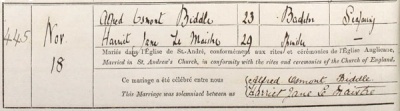 Alfred Osmont Biddle 23 Bachelor
445 Nov. Harriet Jane Le Maistre 29 Spinster
18 Mariés dans l'Eglise de St.-André, conformément aux rites et cérémonies de l'Eglise Anglicane,
Married in St. Andrew's Church, in conformity with the rites and ceremonies of the Church of England.
Ce mariage a été célébré entre nous Alfred Osmont Biddle
This Marriage was solemnized between us Harriet Jane Le Maistre